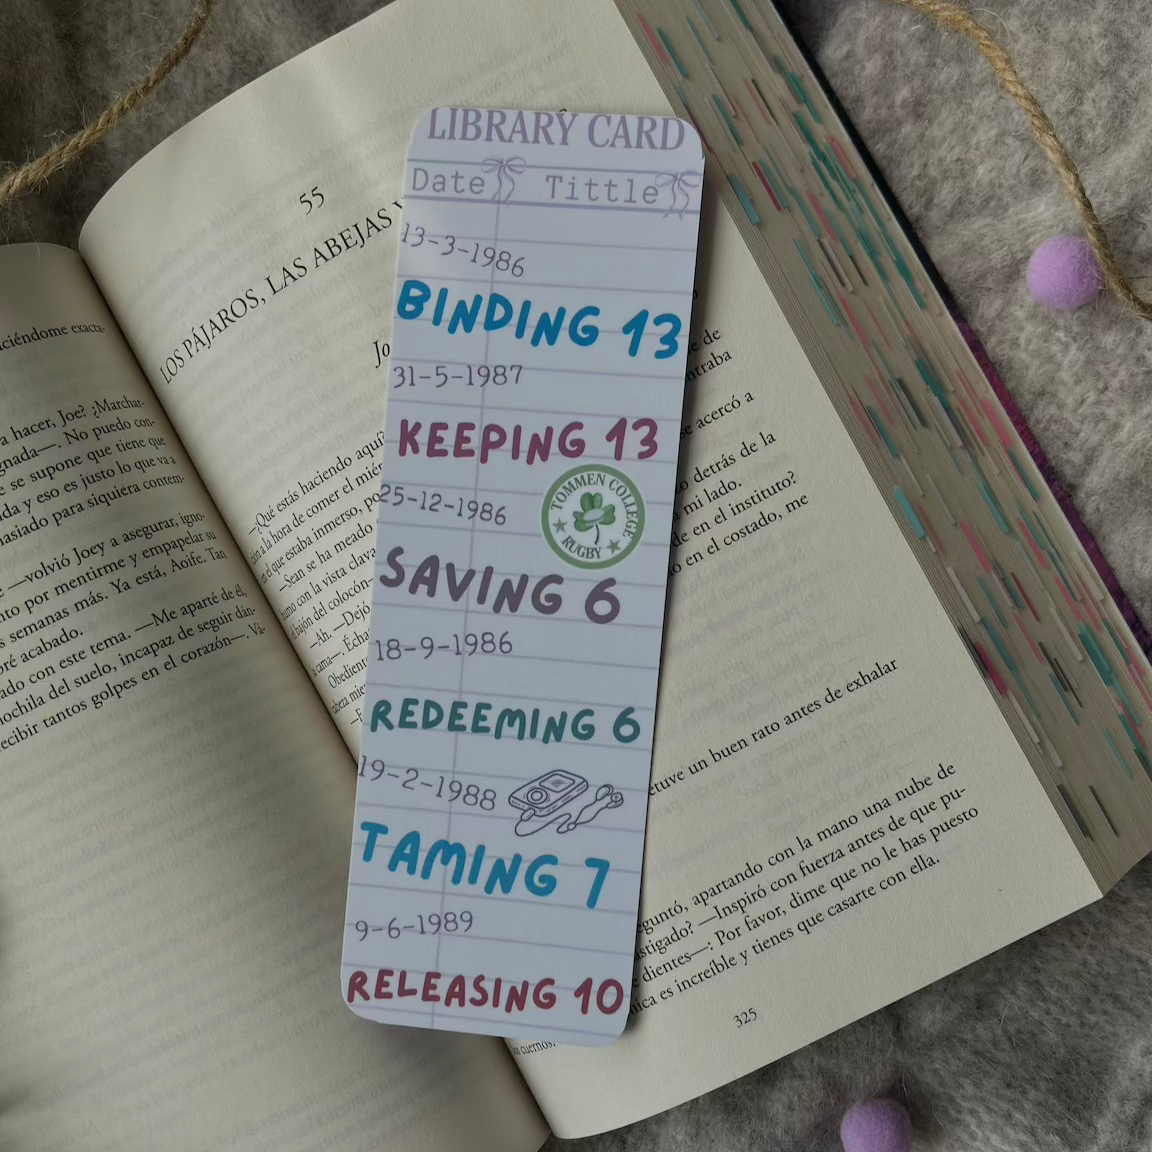 LIBRARY CARD
Date Tittle
13-3-1986
BINDING 13
31-5-1987
KEEPING 13
25-12-1986
TOMMEN COLLEGE
RUGBY
SAVING 6
18-9-1986
REDEEMING 6
19-2-1988
TAMING 7
9-6-1989
RELEASING 10
ciéndome exacta-
a hacer, Joe? ¿Marchar-
gnada—. No puedo con-
e se supone que tiene que
da y eso es justo lo que va a
masiado para siquiera contem-
—volvió Joey a asegurar, igno-
nto por mentirme y empapelar su
semanas más. Ya está, Aoife. Tan
bré acabado.
ado con este tema. —Me aparté de él,
mochila del suelo, incapaz de seguir dán-
ecibir tantos golpes en el corazón—. Vá-
55
LOS PÁJAROS, LAS ABEJAS
Jo
—¿Qué estás haciendo aquí?
a la hora de comer el miér
el que estaba inmerso, po
—Sean se ha meado
humo con la vista clava
el bajón del colocón
—Ah. —Dejó
a cama—. Écha
Obedient
de
ntraba
se acercó a
o detrás de la
mi lado.
de en el instituto?
o en el costado, me
etuve un buen rato antes de exhalar
eguntó, apartando con la mano una nube de
astigado? —Inspiró con fuerza antes de que pu-
dientes—: Por favor, dime que no le has puesto
nica es increíble y tienes que casarte con ella.
cuernos.
325